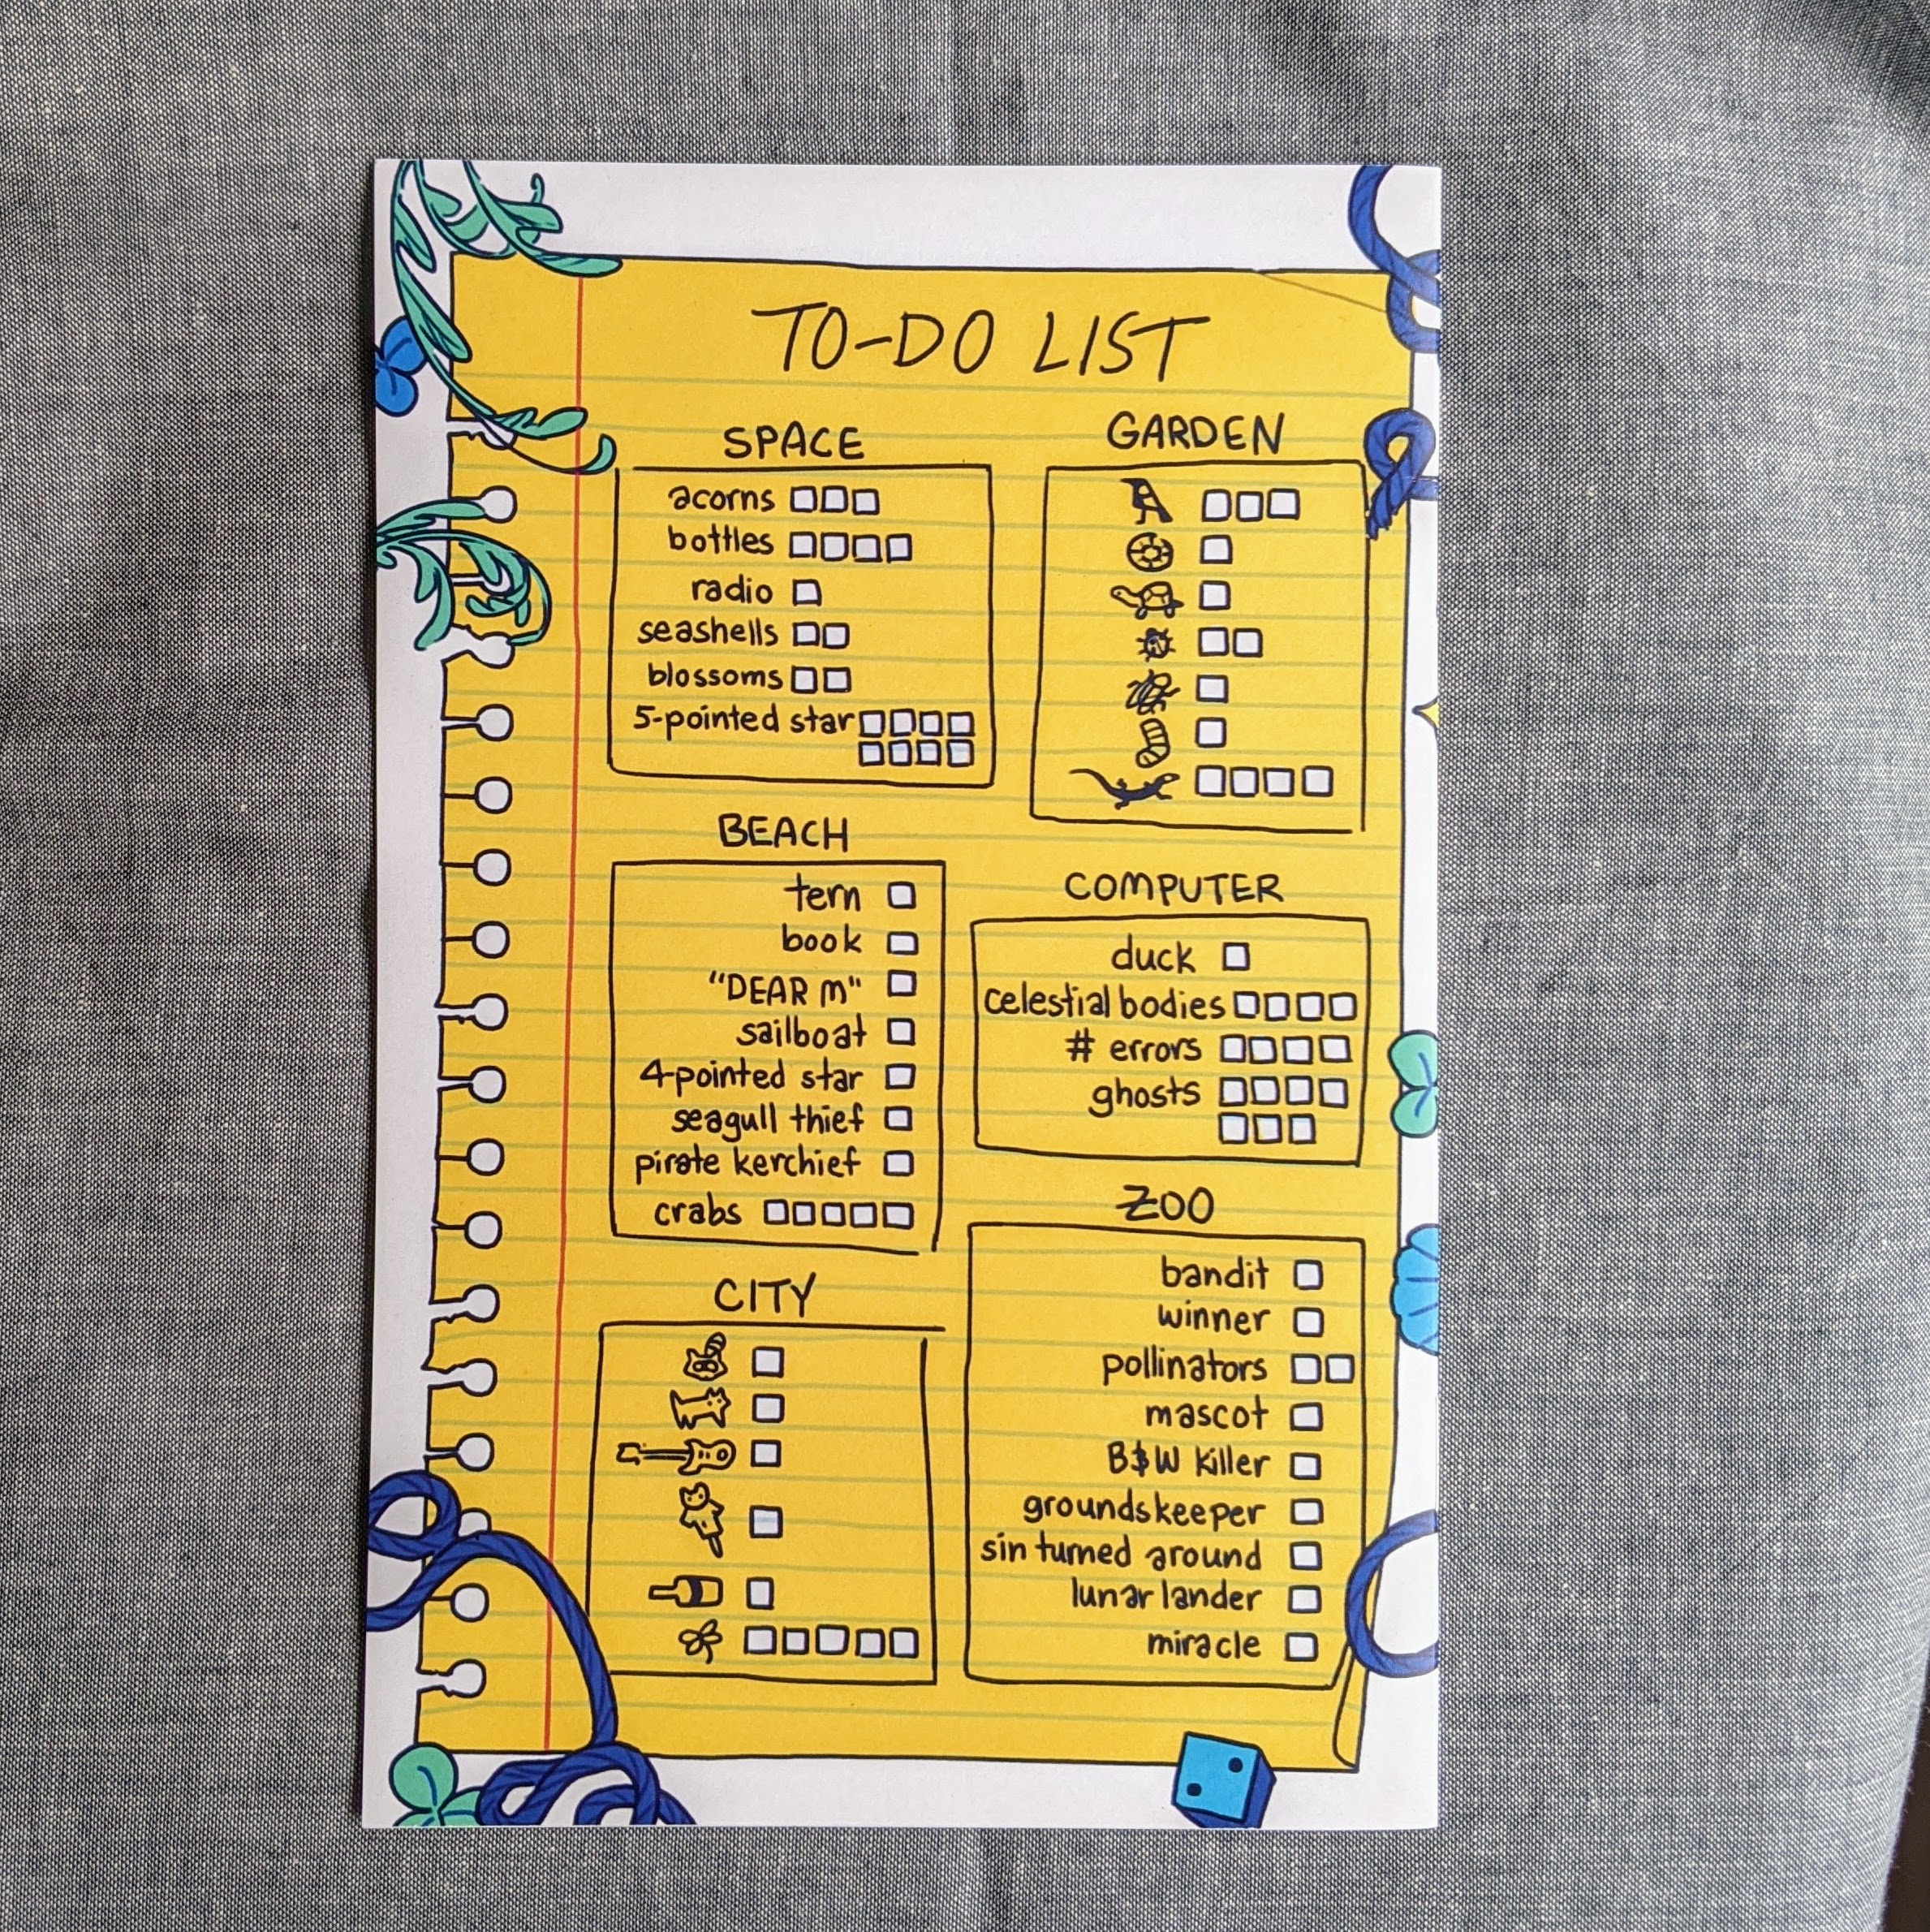 TO-DO LIST
SPACE
acorns
bottles
radio
seashells
blossoms
5-pointed star
GARDEN
BEACH
tern
book
"DEAR M"
sailboat
4-pointed star
seagull thief
pirate kerchief
crabs
COMPUTER
duck
celestial bodies
# errors
ghosts
CITY
ZOO
bandit
winner
pollinators
mascot
B&W killer
groundskeeper
sin turned around
lunar lander
miracle